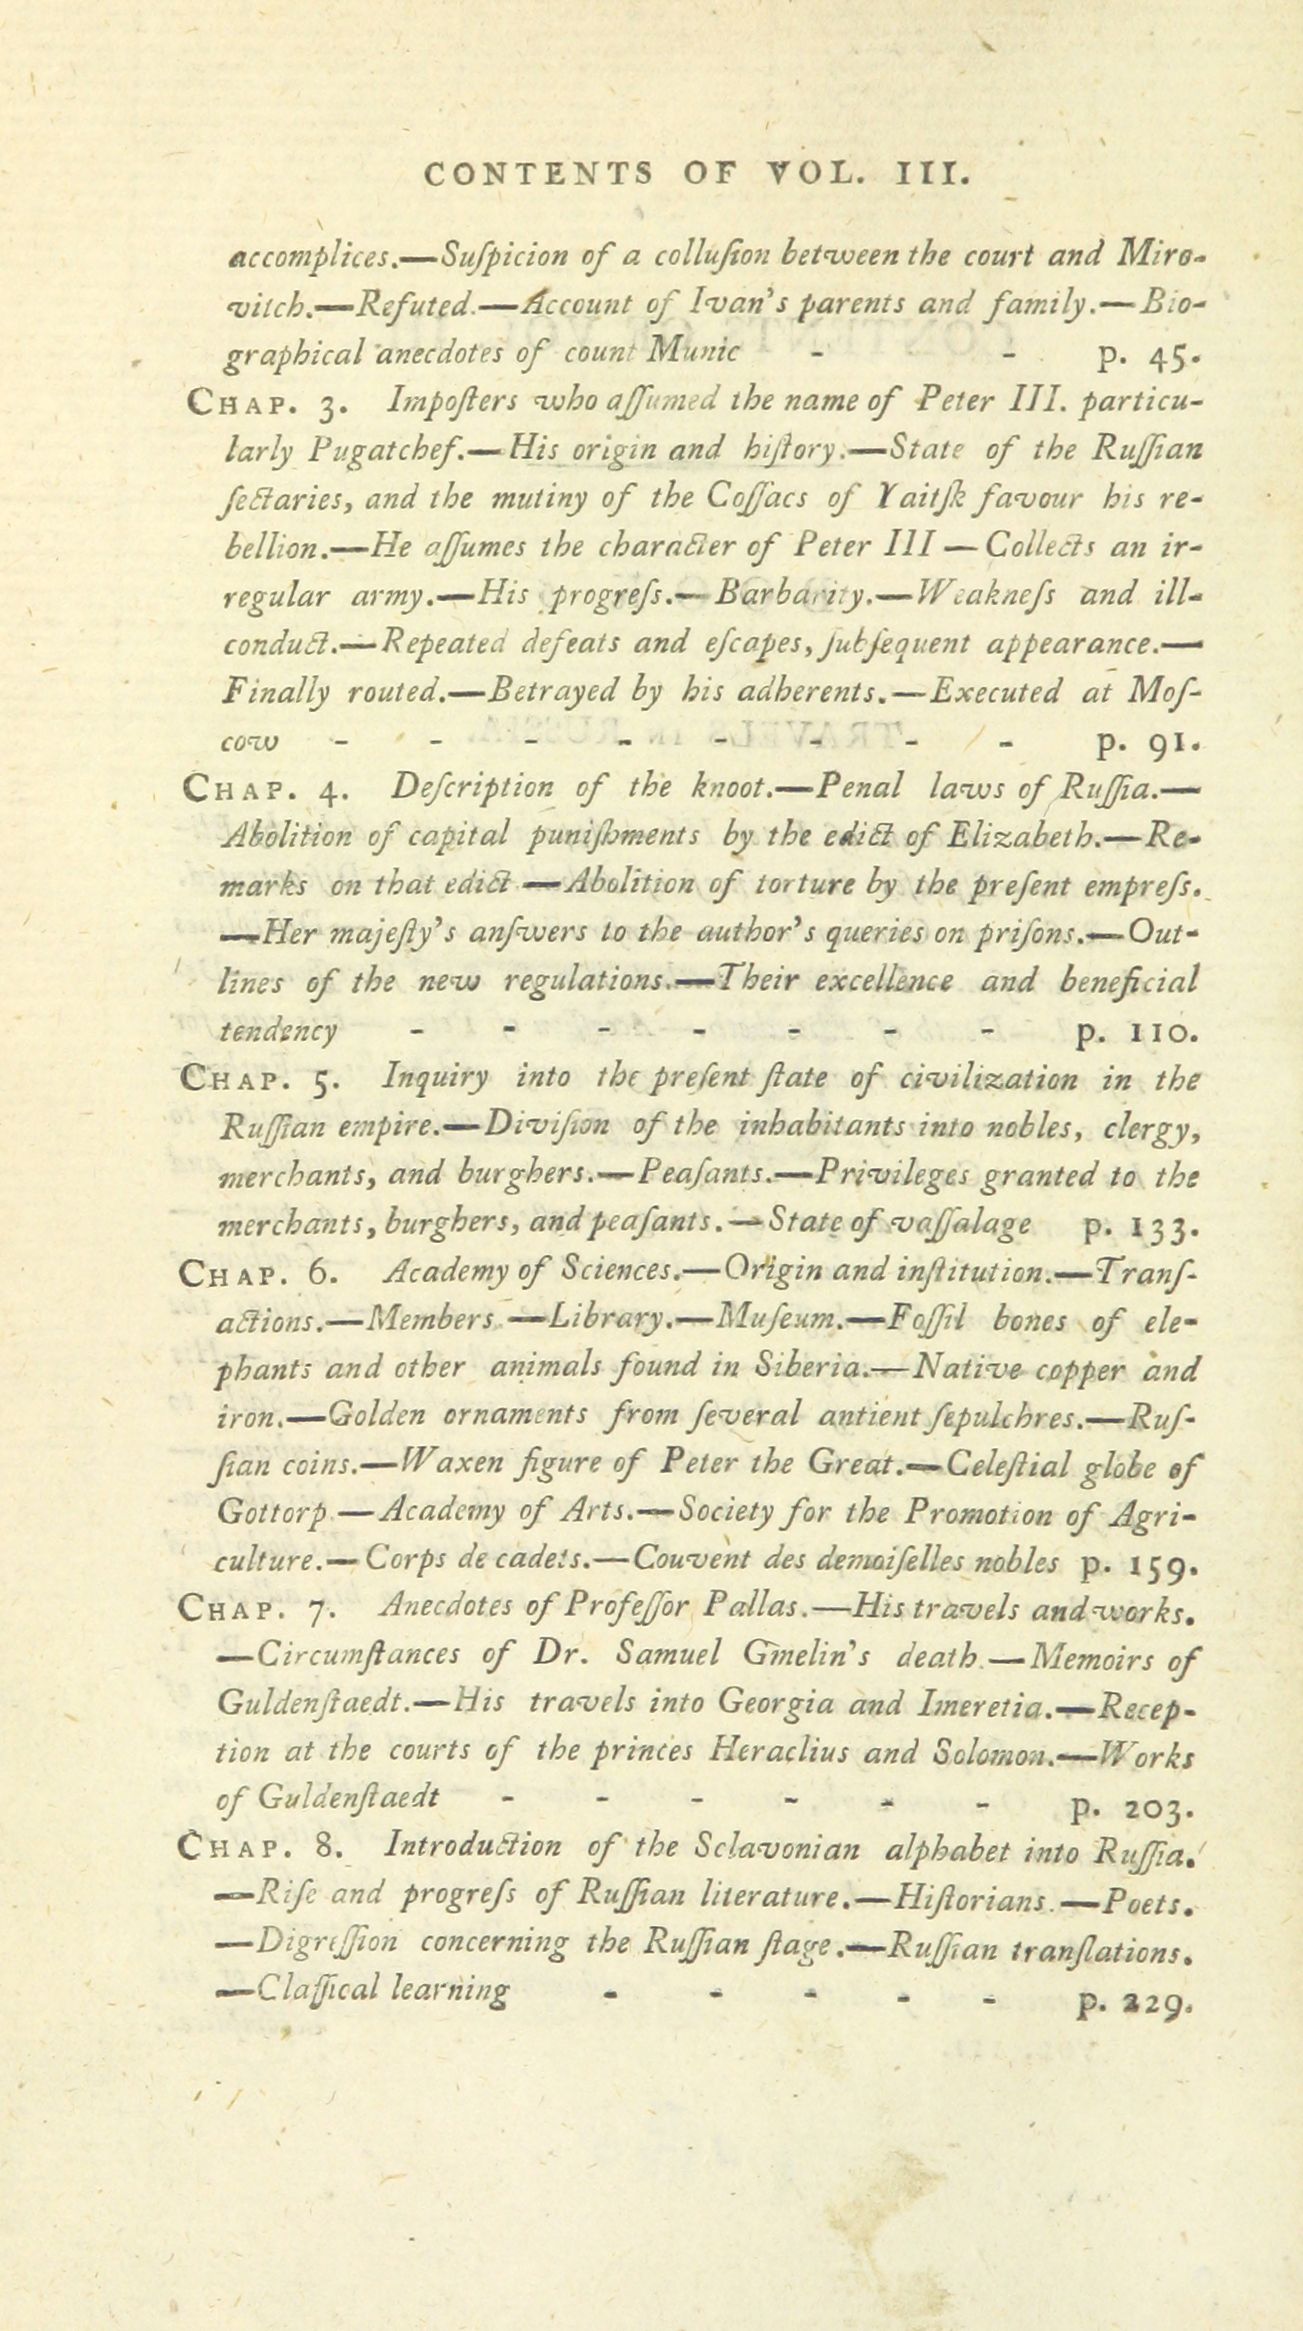 CONTENTS OF VOL. III.
accomplices.—Suſpicion of a colluſion between the court and Miro-
vitch.—Refuted.—Account of Ivan's parents and family.—Bio-
graphical anecdotes of count Munic - - p. 45.
CHAP. 3. Impoſters who aſſumed the name of Peter III. particu-
larly Pugatchef.—His origin and hiſtory.—State of the Ruſſian
ſectaries, and the mutiny of the Coſſacs of Yaitſk favour his re-
bellion.—He aſſumes the character of Peter III—Collects an ir-
regular army.—His progreſs.—Barbarity.—Weakneſs and ill-
conduct.—Repeated defeats and eſcapes, ſubſequent appearance.—
Finally routed.—Betrayed by his adherents.—Executed at Moſ-
cow - - - - - - - - p. 91.
CHAP. 4. Deſcription of the knoot.—Penal laws of Ruſſia.—
Abolition of capital puniſhments by the edict of Elizabeth.—Re-
marks on that edict—Abolition of torture by the preſent empreſs.
—Her majeſty's anſwers to the author's queries on priſons.—Out-
lines of the new regulations.—Their excellence and beneficial
tendency - - - - - - - p. 110.
CHAP. 5. Inquiry into the preſent ſtate of civilization in the
Ruſſian empire.—Diviſion of the inhabitants into nobles, clergy,
merchants, and burghers.—Peaſants.—Privileges granted to the
merchants, burghers, and peaſants.—State of vaſſalage p. 133.
CHAP. 6. Academy of Sciences.—Origin and inſtitution.—Tranſ-
actions.—Members.—Library.—Muſeum.—Foſſil bones of ele-
phants and other animals found in Siberia.—Native copper and
iron.—Golden ornaments from ſeveral antient ſepulchres.—Ruſ-
ſian coins.—Waxen figure of Peter the Great.—Celeſtial globe of
Gottorp.—Academy of Arts.—Society for the Promotion of Agri-
culture.—Corps de cadets.—Couvent des demoiſelles nobles p. 159.
CHAP. 7. Anecdotes of Profeſſor Pallas.—His travels and works.
—Circumſtances of Dr. Samuel Gmelin's death.—Memoirs of
Guldenſtaedt.—His travels into Georgia and Imeretia.—Recep-
tion at the courts of the princes Heraclius and Solomon.—Works
of Guldenſtaedt - - - - - - p. 203.
CHAP. 8. Introduction of the Sclavonian alphabet into Ruſſia.
—Riſe and progreſs of Ruſſian literature.—Hiſtorians.—Poets.
—Digreſſion concerning the Ruſſian ſtage.—Ruſſian tranſlations.
—Claſſical learning - - - - - p. 229.